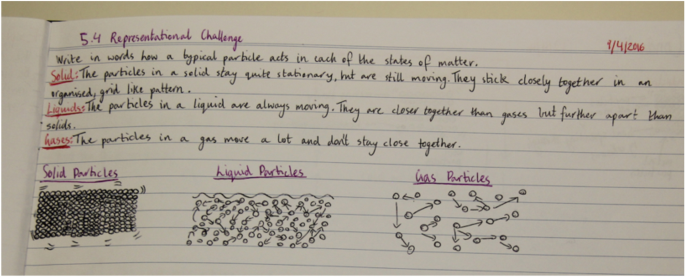 5.4 Representational Challenge
9/4/2016
Write in words how a typical particle acts in each of the states of matter.
Solid: The particles in a solid stay quite stationary, but are still moving. They stick closely together in an
organised, grid like pattern.
Liquids: The particles in a liquid are always moving. They are closer together than gases but further apart than
solids.
Gases: The particles in a gas move a lot and don't stay close together.
Solid Particles Liquid Particles Gas Particles